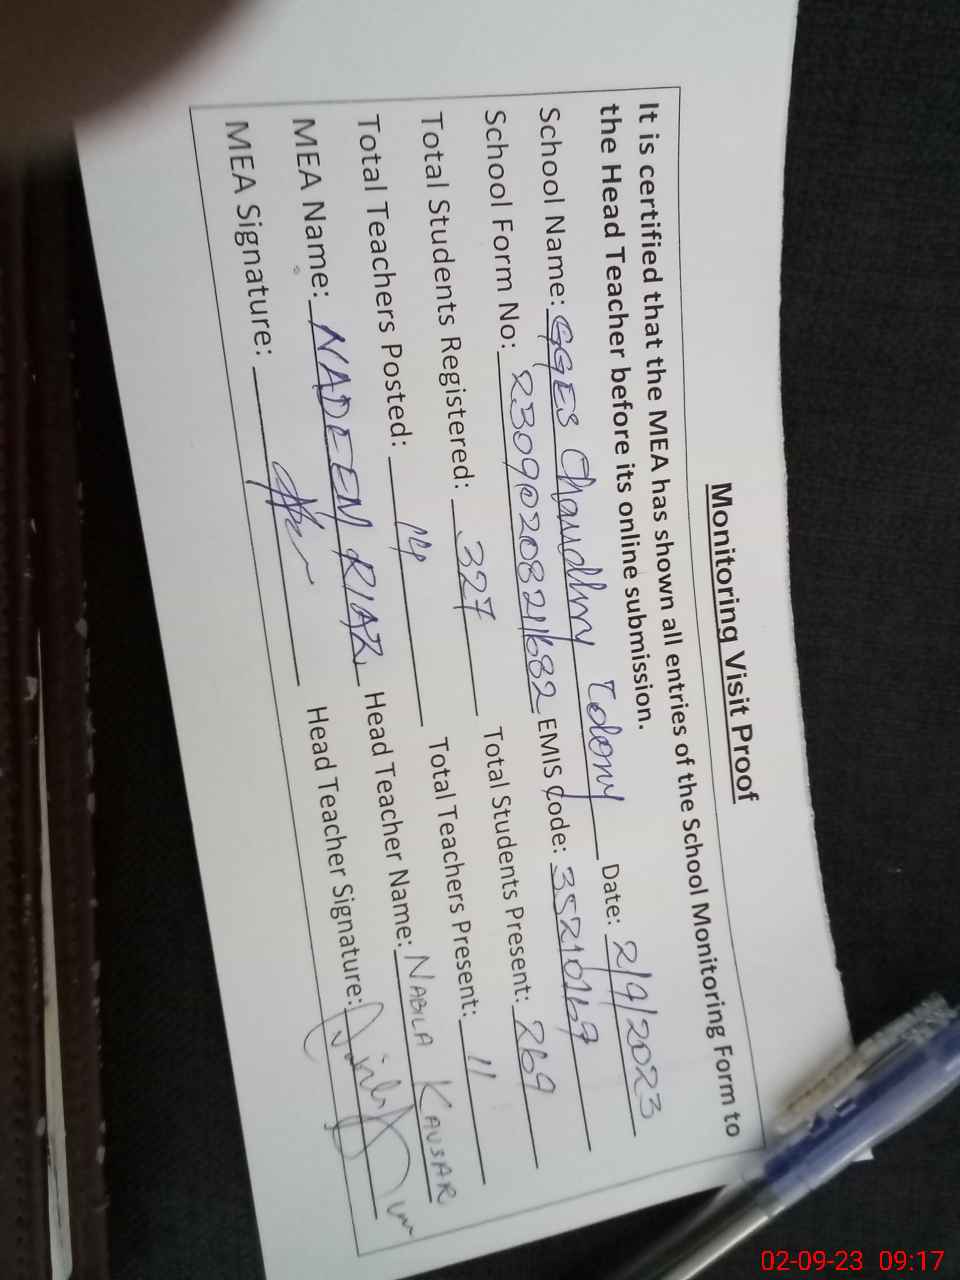 Monitoring Visit Proof
It is certified that the MEA has shown all entries of the School Monitoring Form to
the Head Teacher before its online submission.
School Name: GGES Chaudhry Colony Date: 2/9/2023
School Form No: 2309020821682 EMIS Code: 35210167
Total Students Registered: 327 Total Students Present: 269
Total Teachers Posted: 14 Total Teachers Present: 11
MEA Name: NADEEM RIAZ Head Teacher Name: NABILA KAUSAR
MEA Signature: Head Teacher Signature:
02-09-23 09:17